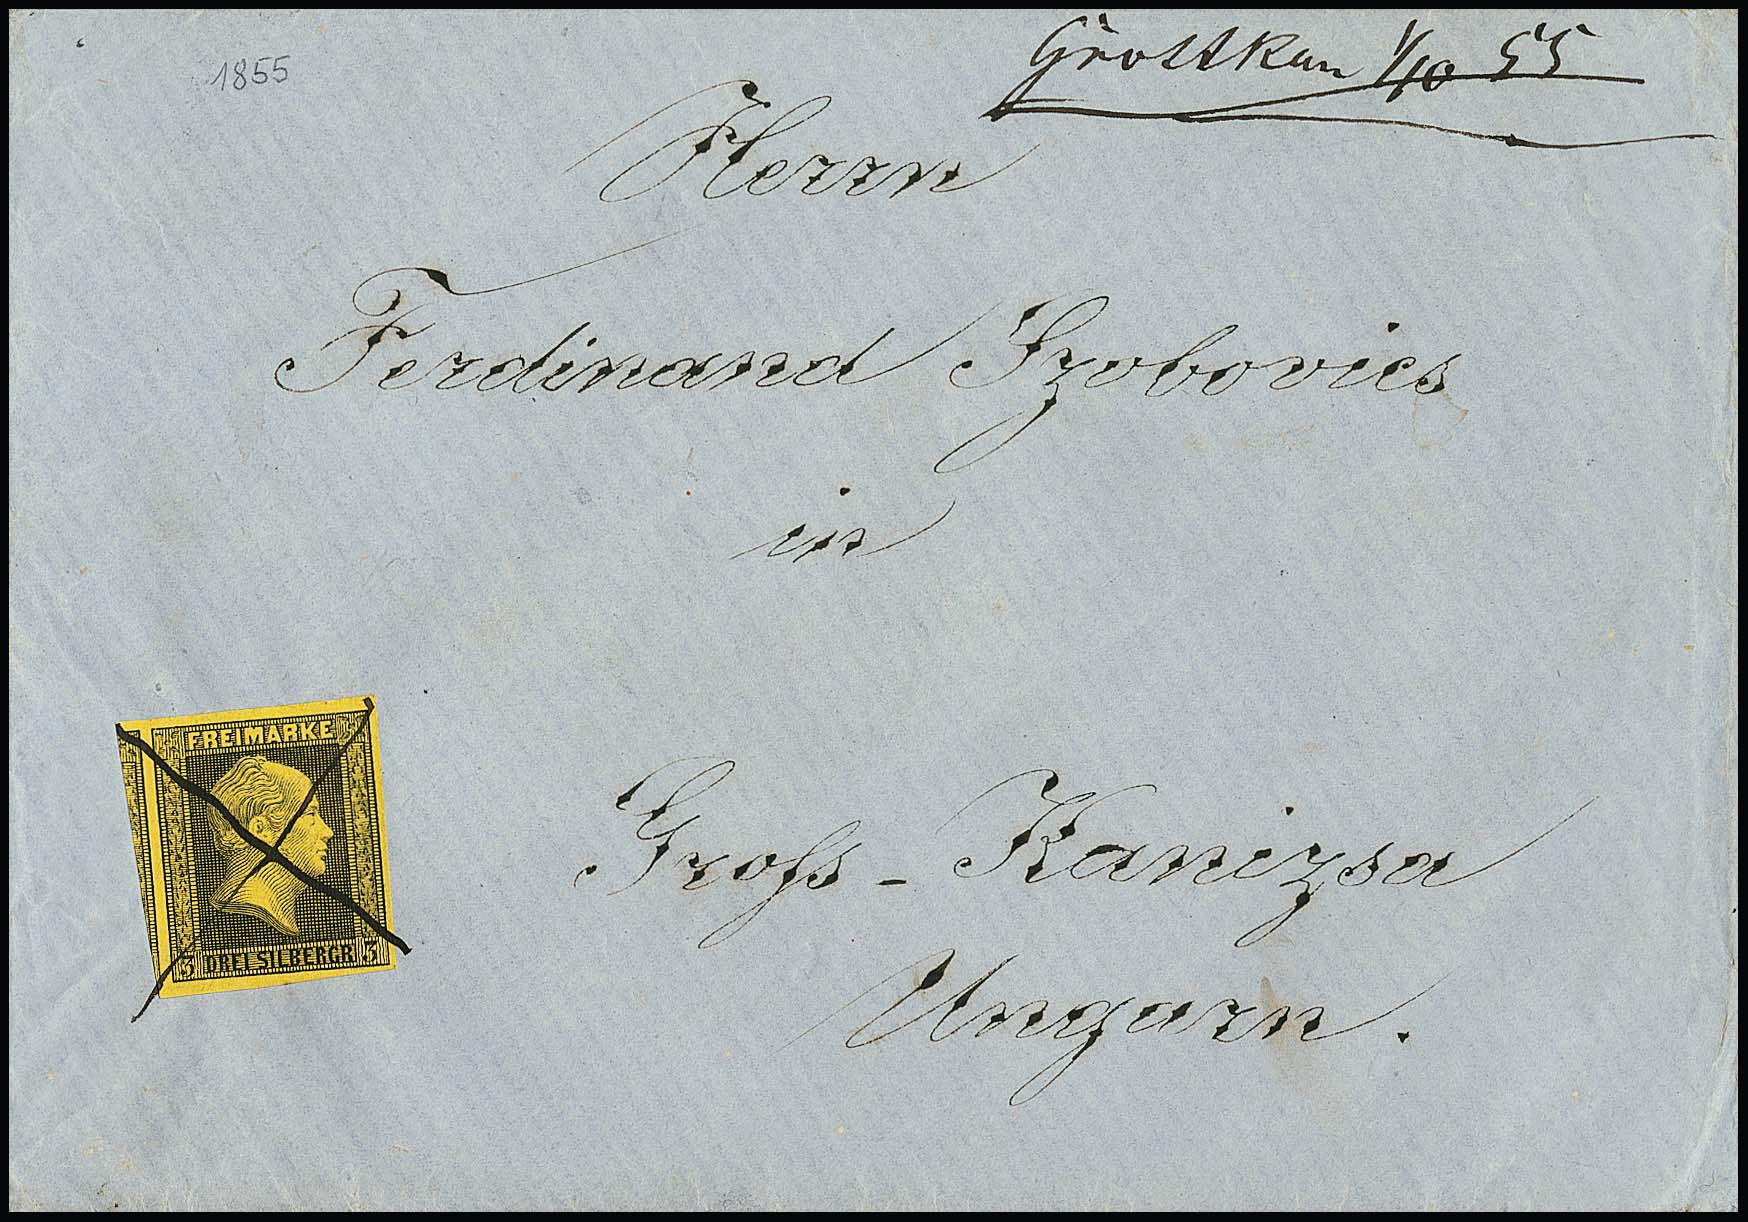 Grottkau 1/10 55
1855
Herrn
Ferdinand Szobovics
in
Gross-Kanizsa
Ungarn.
FREIMARKE
3 DREI SILBERGR. 3